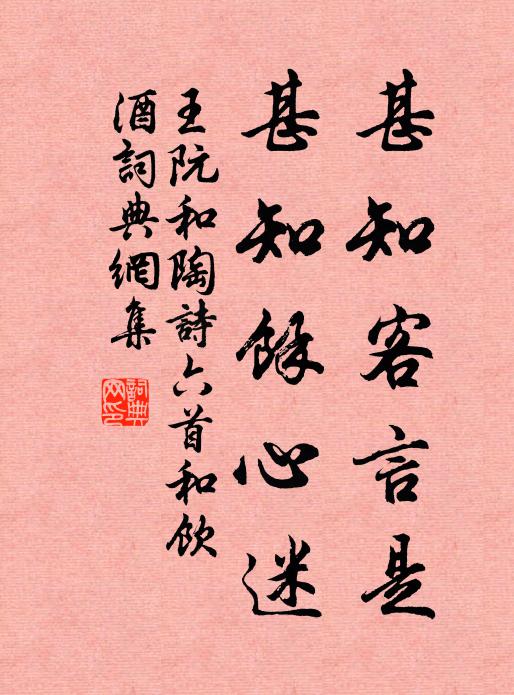 甚知客言是
甚知餘心迷
王阮和陶詩六首和飲
酒詞典網集
詞典网印